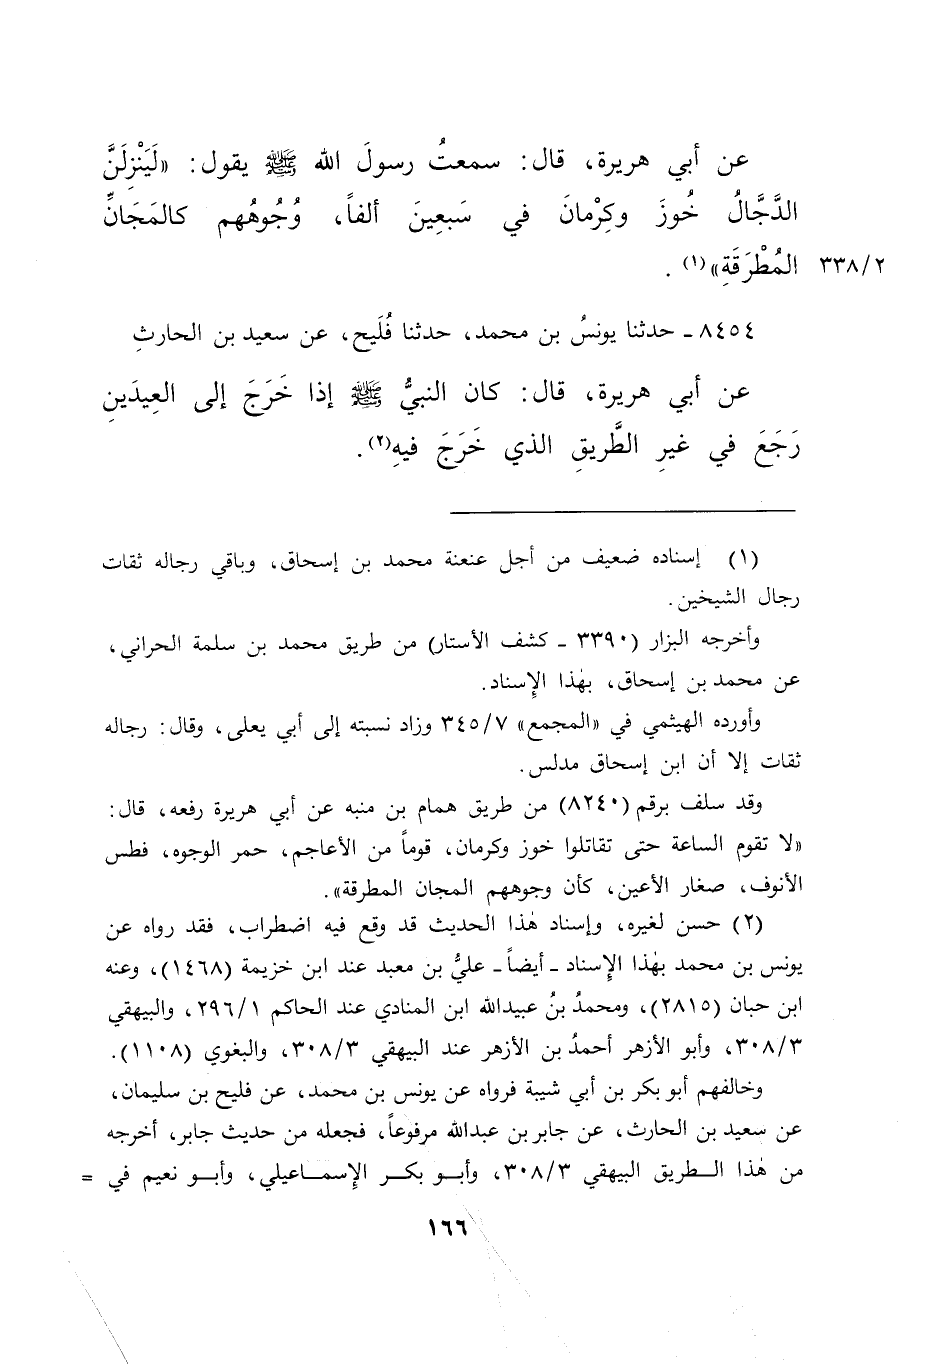 عن أبي هريرة، قال: سمعتُ رسولَ الله ﷺ يقول: «لَيَنْزِلَنَّ
الدَّجَّالُ خُوزَ وكِرْمانَ في سَبعِينَ ألفاً، وُجُوهُهم كالمَجَانِّ
المُطْرَقَةِ»(١).
٣٣٨/٢
٨٤٥٤ ـ حدثنا يونسُ بن محمد، حدثنا فُلَيح، عن سعيد بن الحارثِ
عن أبي هريرة، قال: كان النبيُّ ﷺ إذا خَرَجَ إلى العِيدَينِ
رَجَعَ في غيرِ الطَّريقِ الذي خَرَجَ فيهِ(٢).
(١) إسناده ضعيف من أجل عنعنة محمد بن إسحاق، وباقي رجاله ثقات
رجال الشيخين.
وأخرجه البزار (٣٣٩٠ ـ كشف الأستار) من طريق محمد بن سلمة الحراني،
عن محمد بن إسحاق، بهٰذا الإِسناد.
وأورده الهيثمي في «المجمع» ٣٤٥/٧ وزاد نسبته إلى أبي يعلى، وقال: رجاله
ثقات إلا أن ابن إسحاق مدلس.
وقد سلف برقم (٨٢٤٠) من طريق همام بن منبه عن أبي هريرة رفعه، قال:
«لا تقوم الساعة حتى تقاتلوا خوز وكرمان، قوماً من الأعاجم، حمر الوجوه، فطس
الأنوف، صغار الأعين، كأن وجوههم المجان المطرقة».
(٢) حسن لغيره، وإسناد هٰذا الحديث قد وقع فيه اضطراب، فقد رواه عن
يونس بن محمد بهٰذا الإسناد ـ أيضاً ـ عليُّ بن معبد عند ابن خزيمة (١٤٦٨)، وعنه
ابن حبان (٢٨١٥)، ومحمدُ بنُ عبيدالله ابن المنادي عند الحاكم ٢٩٦/١، والبيهقي
٣٠٨/٣، وأبو الأزهر أحمدُ بن الأزهر عند البيهقي ٣٠٨/٣، والبغوي (١١٠٨).
وخالفهم أبو بكر بن أبي شيبة فرواه عن يونس بن محمد، عن فليح بن سليمان،
عن سعيد بن الحارث، عن جابر بن عبدالله مرفوعاً، فجعله من حديث جابر، أخرجه
من هٰذا الطريق البيهقي ٣٠٨/٣، وأبو بكر الإِسماعيلي، وأبو نعيم في =
١٦٦